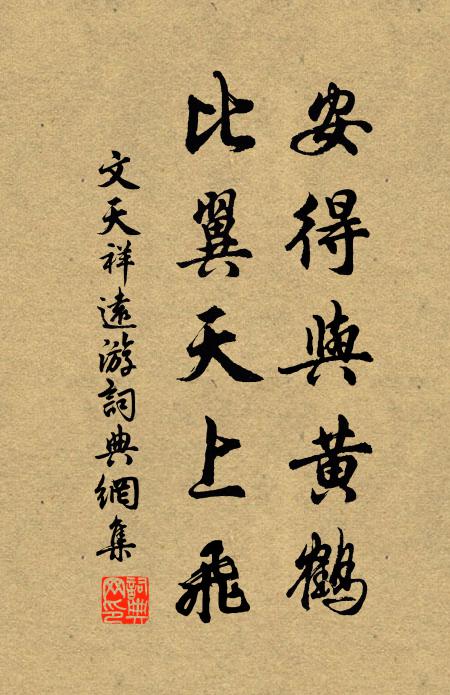 安得與黄鶴
比翼天上飛
文天祥遠游詞典網集
詞典网印